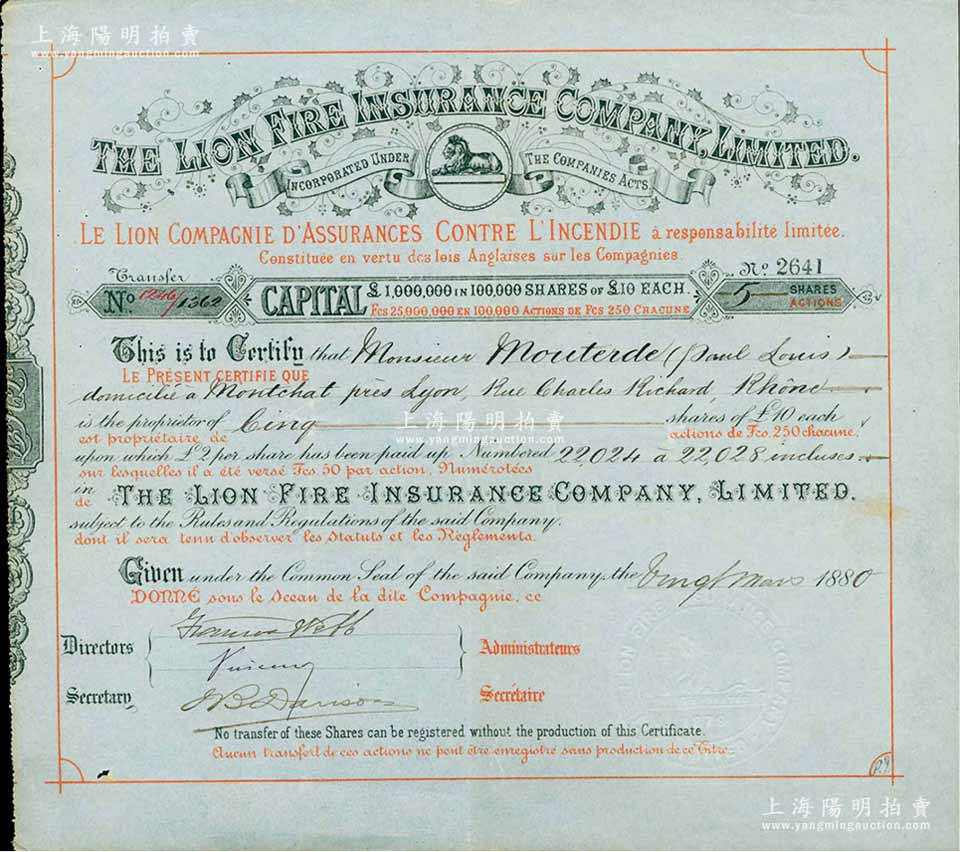 上海陽明拍賣
www.yangmingauction.com
THE LION FIRE INSURANCE COMPANY, LIMITED.
INCORPORATED UNDER THE COMPANIES ACTS.
LE LION COMPAGNIE D'ASSURANCES CONTRE L'INCENDIE à responsabilité limitée.
Constituée en vertu des lois Anglaises sur les Compagnies.
Transfer
No. 2641
No. 1246/1362
CAPITAL £1,000,000 IN 100,000 SHARES OF £10 EACH.
Fcs 25,000,000 EN 100,000 ACTIONS DE Fcs 250 CHACUNE
5 SHARES
ACTIONS
This is to Certify that Monsieur Mouterde (Paul Louis)
LE PRÉSENT CERTIFIE QUE
domicilié à Montchat près Lyon, Rue Charles Richard, Rhône
is the proprietor of Cinq shares of £10 each
est propriétaire de actions de Fcs. 250 chacune,
上海陽明拍賣
www.yangmingauction.com
upon which £2 per share has been paid up Numbered 22,024 à 22,028 incluses
sur lesquelles il a été versé Fcs. 50 par action, Numérotées
in
de THE LION FIRE INSURANCE COMPANY, LIMITED.
subject to the Rules and Regulations of the said Company.
dont il sera tenu d'observer les Statuts et les Règlements.
Given under the Common Seal of the said Company, the Vingt Mars 1880
DONNÉ sous le Sceau de la dite Compagnie, ce
Francis Webb
Directors Administrateurs
Secretary Secrétaire
No transfer of these Shares can be registered without the production of this Certificate.
Aucun transfert de ces actions ne peut être enregistré sans production de ce Titre.
上海陽明拍賣
www.yangmingauction.com